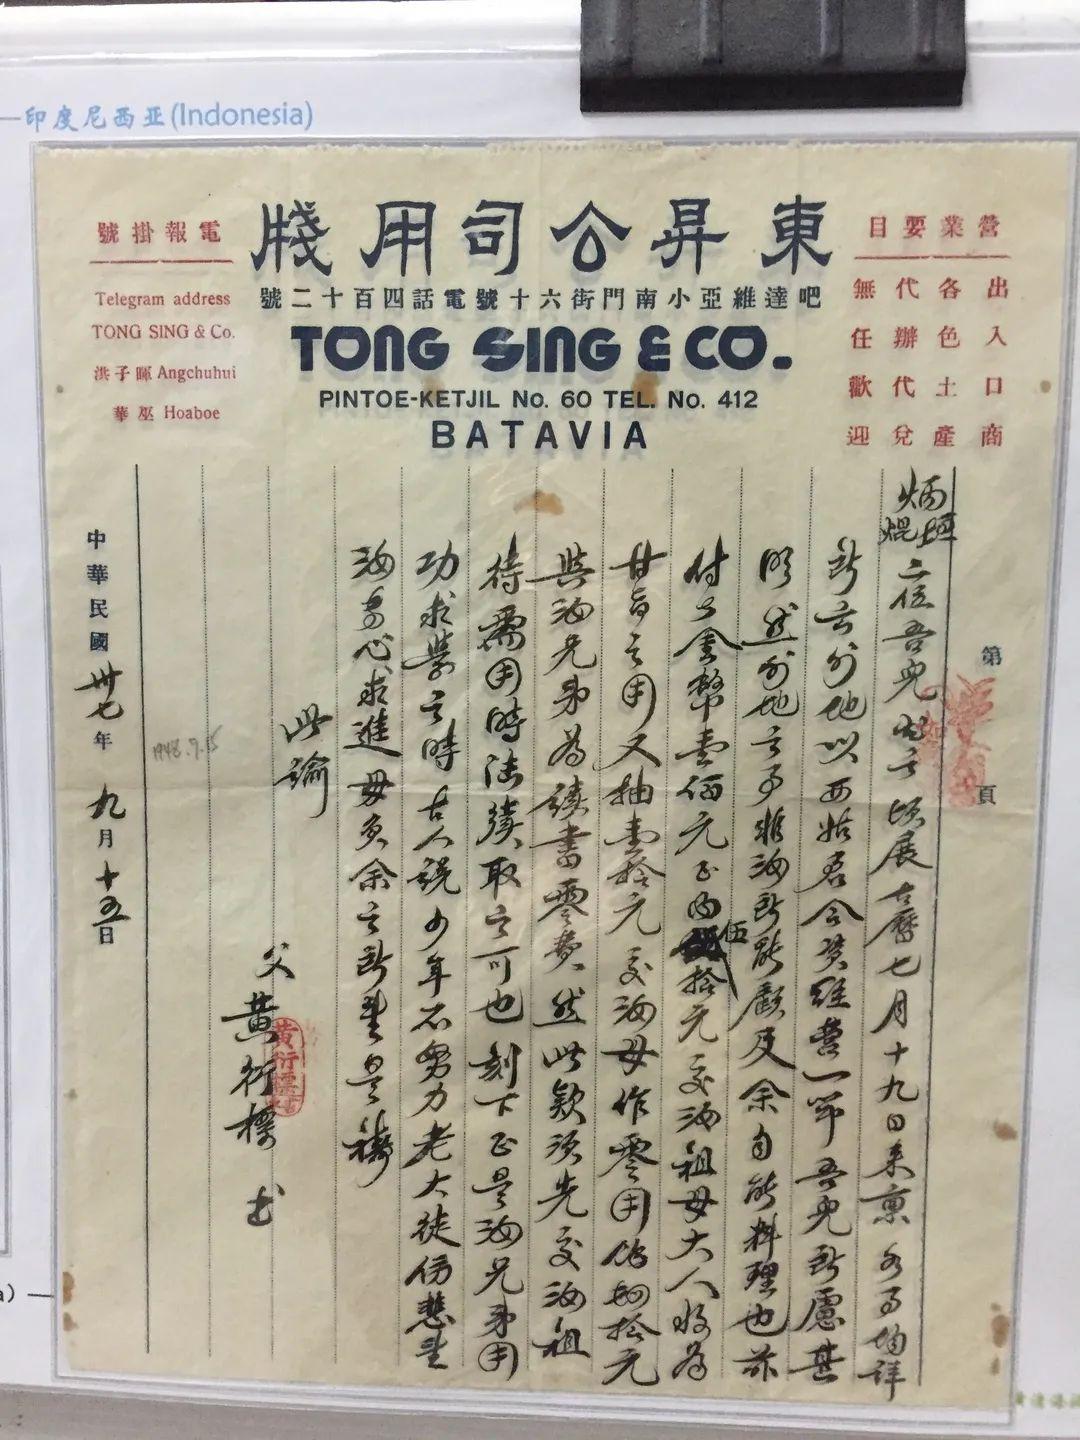 印度尼西亚(Indonesia)
東昇公司用牋
吧達維亞小南門街六十號電話四百十二號
TONG SING & CO.
PINTOE-KETJIL No. 60 TEL. No. 412
BATAVIA
營業要目
出入口商
各色土產
代辦代兌
無任歡迎
電報掛號
Telegram address
TONG SING & Co.
洪子暉 Angchuhui
華巫 Hoaboe
第 頁
炳煌
焜
二位吾兒 頃展古曆七月十九日來稟 各事均詳
所云外地以西姑君合資經營一節 吾兒所慮甚
明 然外地之事非汝所能顧及 余自能料理也 茲
付去金幣壹佰元正 內伍拾元交汝祖母大人收為
甘旨之用 又抽壹拾元交汝母作零用 拾元
與汝兄弟為讀書零費 然此款須先交汝祖
待需用時陸續取之可也 刻下正是汝兄弟用
功求學之時 古人說少年不努力老大徒傷悲
汝專心求進 毋負余之所望是禱
此諭
父 黃衍標 書
黃衍標
中華民國卅七年九月十五日
1948.9.15